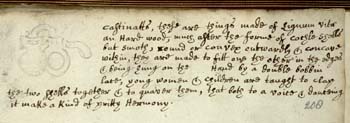 castinatts, these are things made of Lignum vitæ
an Hard wood, much after the forme of Cockle shells
but smoth, round or convex outwardly & concave
within, they are made to fitt one the other in the edges
& being hung on the Hand by a double bobbin
lase, yong women & children are taught to clap
the two shells together & to quaver them, that both to a voice & dauncing
it make a kind of pritty Hermony.
208